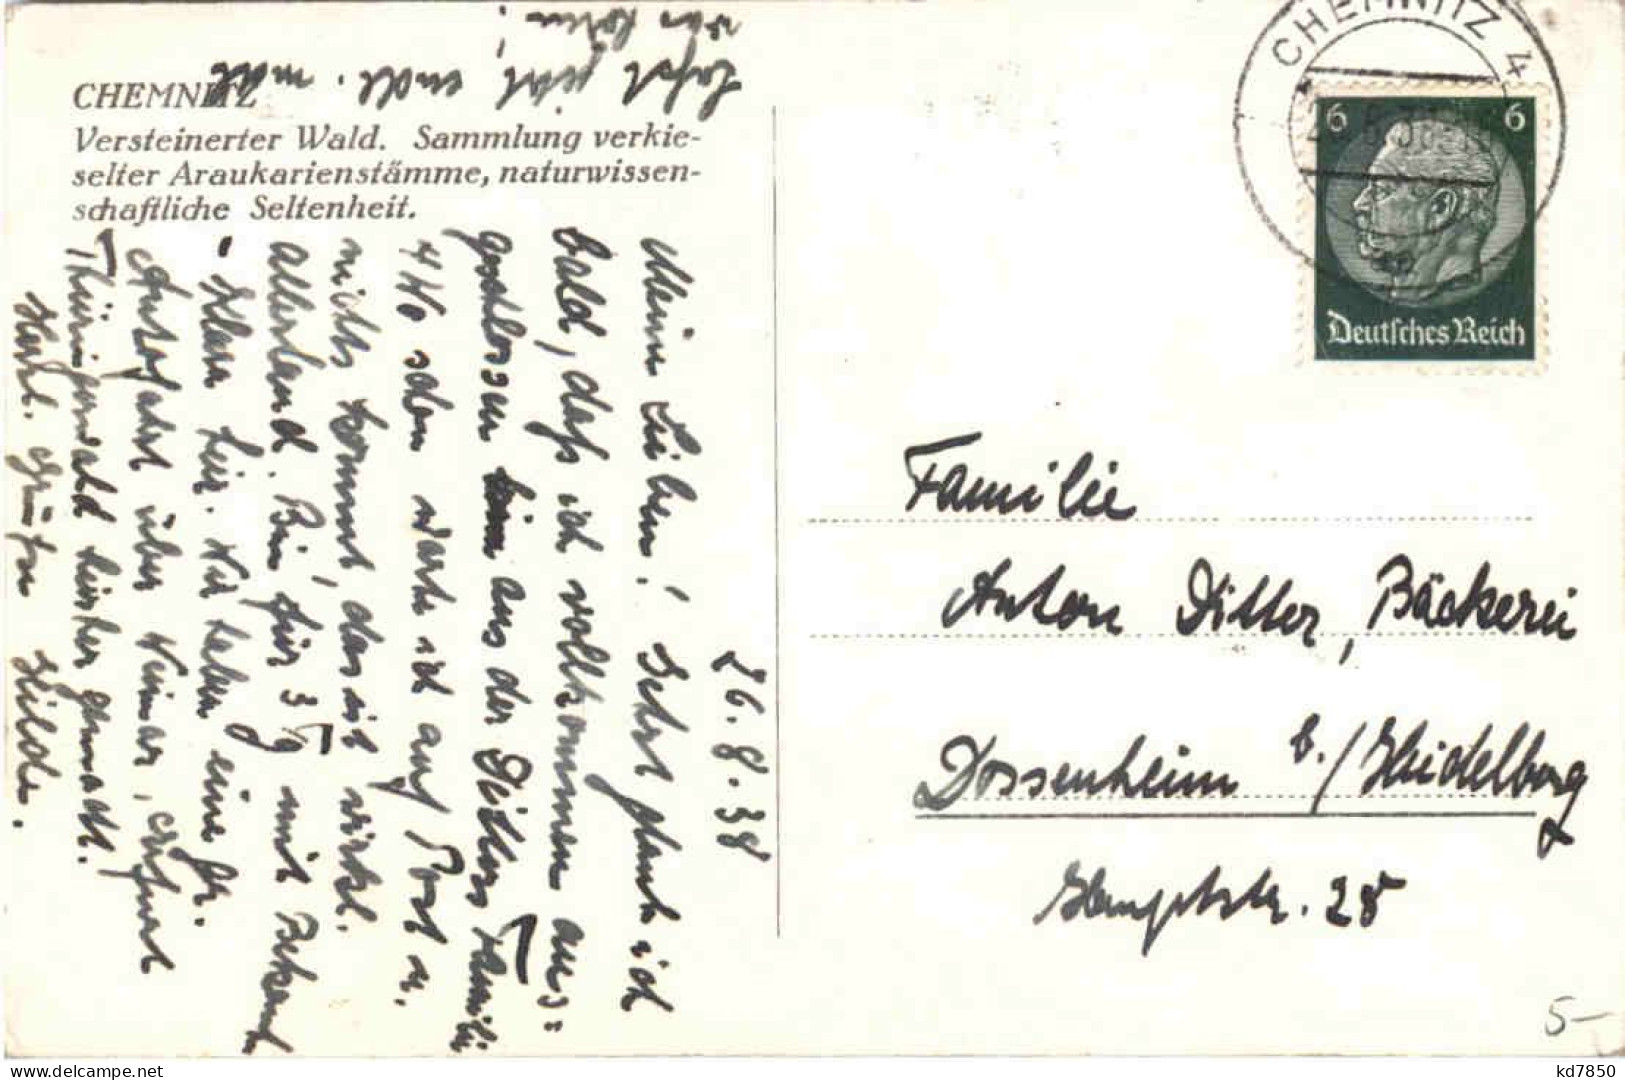 CHEMNITZ
Versteinerter Wald. Sammlung verkie-
selter Araukarienstämme, naturwissen-
schaftliche Seltenheit.
26.8.38
Meine Lieben! Jetzt glaub ich
bald, daß ich vollkommen aus=
geschlossen bin aus der Ditters Familie
schon warte ich auf Post u.
nichts kommt, das ist wirkl.
allerhand. Bin für 3 Tg mit Bekannt
- hier. Wir haben eine
Autofahrt über Weimar, Erfurt
Thüringerwald hierher gemacht.
Herzl. Grüße Hilde.
Laßt jetzt endl. mal
was hören!
CHEMNITZ 4
6 6
Deutsches Reich
Familie
Anton Ditter, Bäckerei
Dossenheim b./Heidelberg
Hauptstr. 28
5-
kd7850